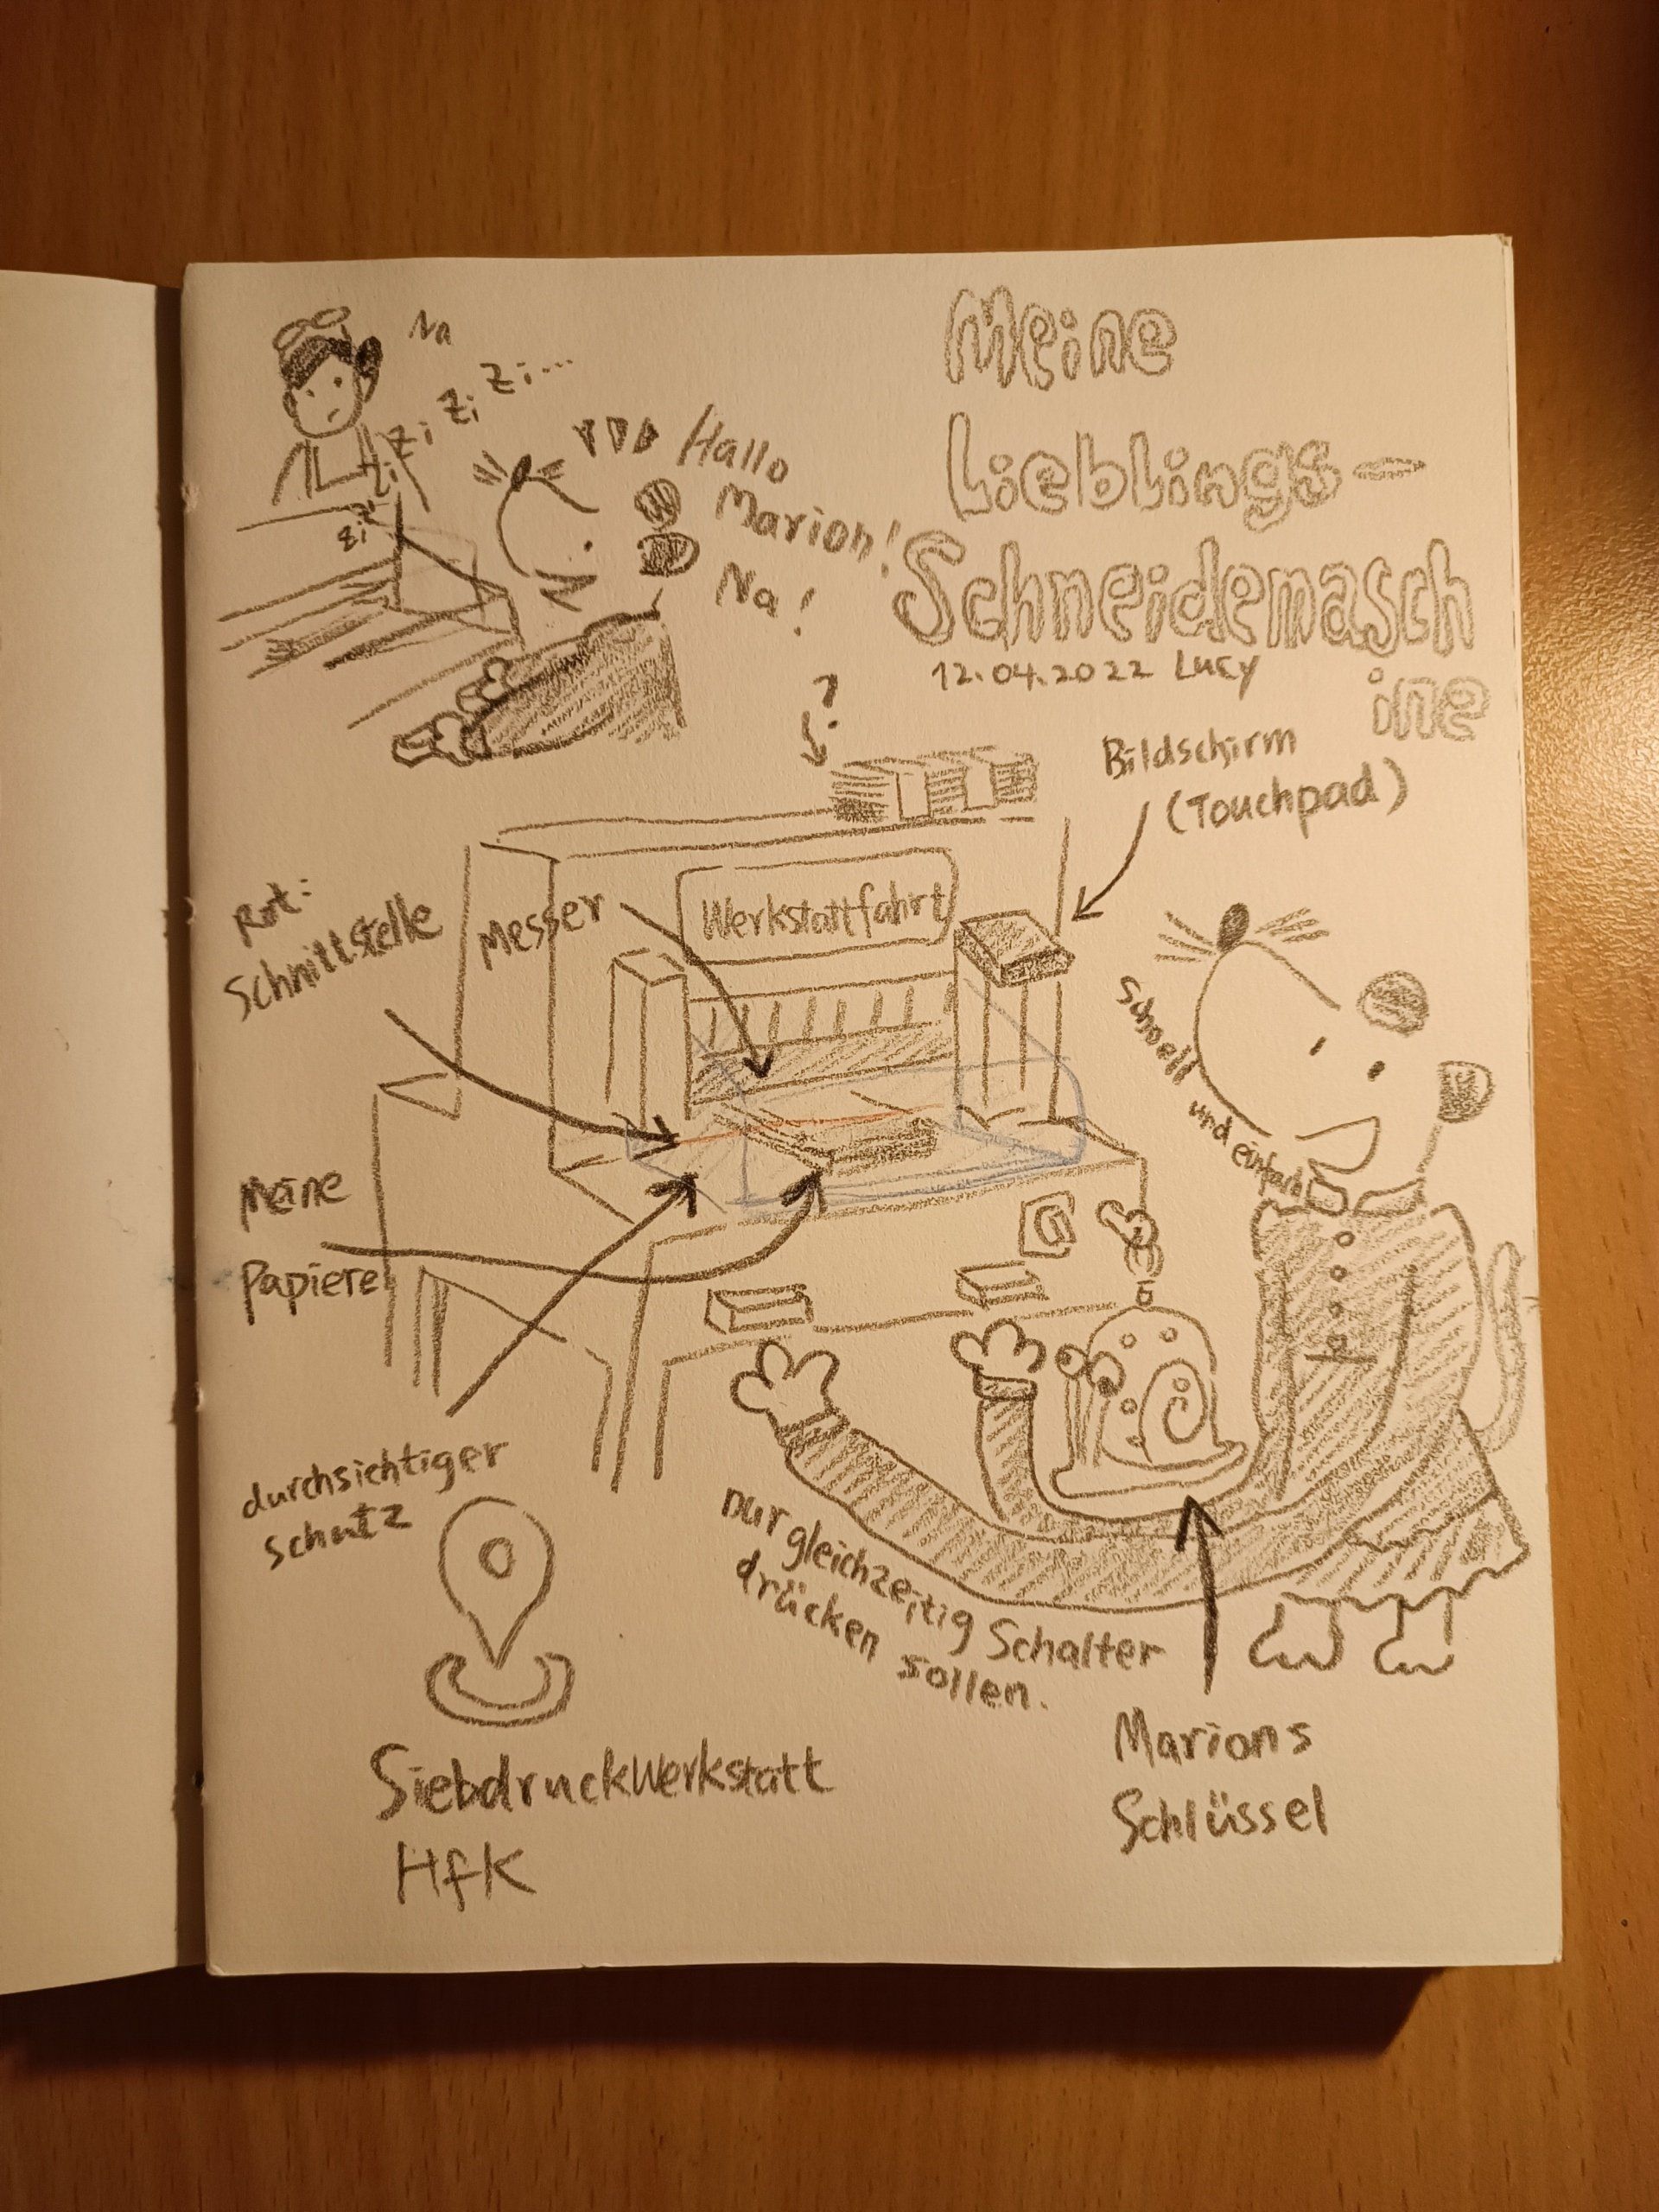 Na
zi zi zi zi zi...
Hallo
Marion!
Na!
Meine
Lieblings-
Schneidemasch
ine
12.04.2022 Lucy
?
Bildschirm
(Touchpad)
Rot:
Schnittstelle
Messer
Werkstattfahrt
Schnell
und einfach
Meine
Papiere
durchsichtiger
Schutz
nur gleichzeitig Schalter
drücken sollen.
Marions
Schlüssel
Siebdruckwerkstatt
HfK